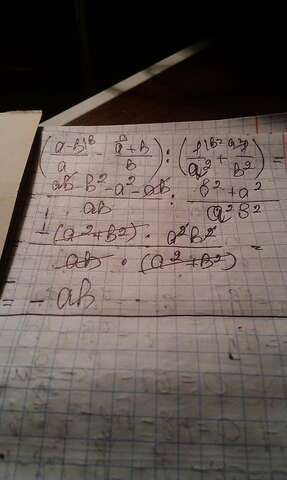 (a-b|b / a - a+b|a / b) : (1|b² / a² + 1|a² / b²) =
ab-b²-a²-ab / ab : b²+a² / a²b²
- (a²+b²) · a²b² / ab · (a²+b²) =
= - ab